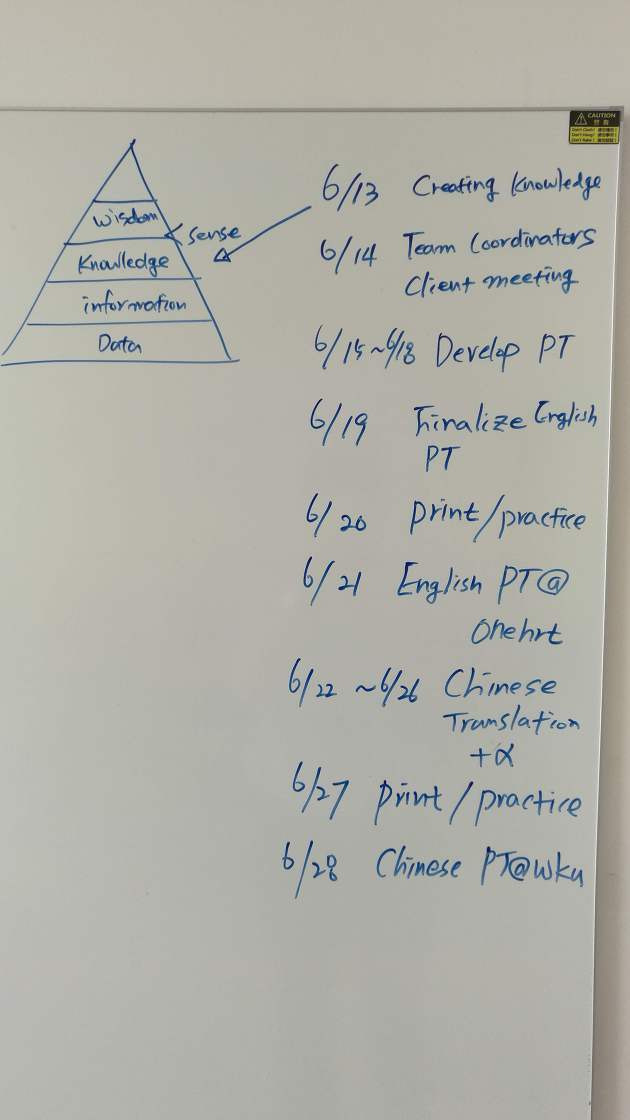 wisdom
sense
Knowledge
information
Data
6/13 Creating Knowledge
6/14 Team Coordinators
Client meeting
6/15~6/18 Develop PT
6/19 Finalize English
PT
6/20 print/practice
6/21 English PT@
Onehrt
6/22 ~6/26 Chinese
Translation
+α
6/27 print/practice
6/28 Chinese PT@wku
CAUTION